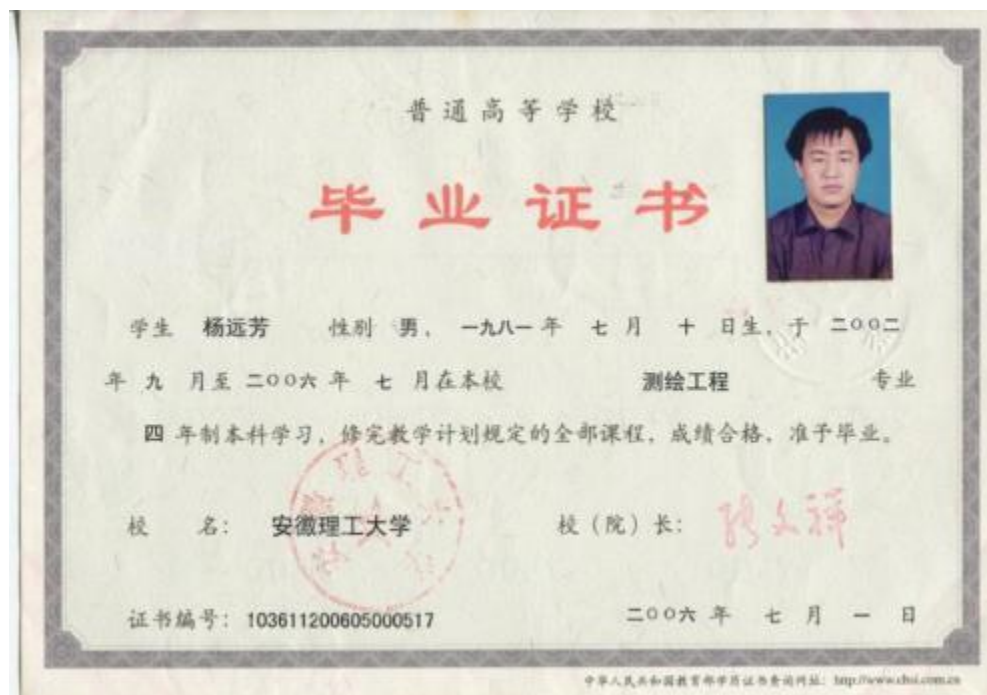 普通高等学校
毕业证书
学生 杨远芳 性别 男, 一九八一 年 七 月 十 日生, 于 二〇〇二
年 九 月至 二〇〇六 年 七 月在本校 测绘工程 专业
四 年制本科学习, 修完教学计划规定的全部课程, 成绩合格, 准予毕业。
校 名: 安徽理工大学 校(院)长:
证书编号: 103611200605000517 二〇〇六 年 七 月 一 日
中华人民共和国教育部学历证书查询网址: http://www.chsi.com.cn